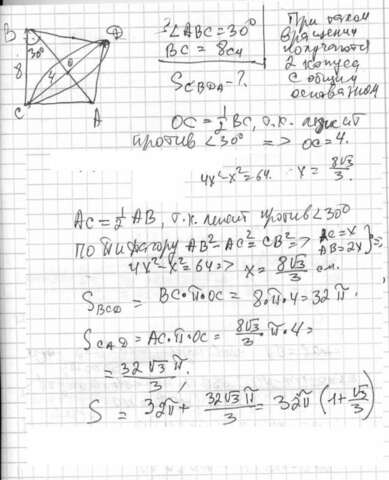 B
D
30°
8
4
O
C
A
∠ABC = 30°
BC = 8 см
S_CBDA - ?
При таком
вращении
получаются
2 конуса
с общим
основанием
OC = 1/2 BC, т.к. лежит
против ∠30° => OC = 4.
4x² - x² = 64. x = 8√3/3.
AC = 1/2 AB, т.к. лежит против ∠30°
по Пифагору AB² - AC² = CB² => AC = x
AB = 2x } =>
4x² - x² = 64 => x = 8√3/3 см.
S_BCD = BC · π · OC = 8 · π · 4 = 32π.
S_CAD = AC · π · OC = 8√3/3 · π · 4 =
= 32√3π/3.
S = 32π + 32√3π/3 = 32π (1 + √3/3)